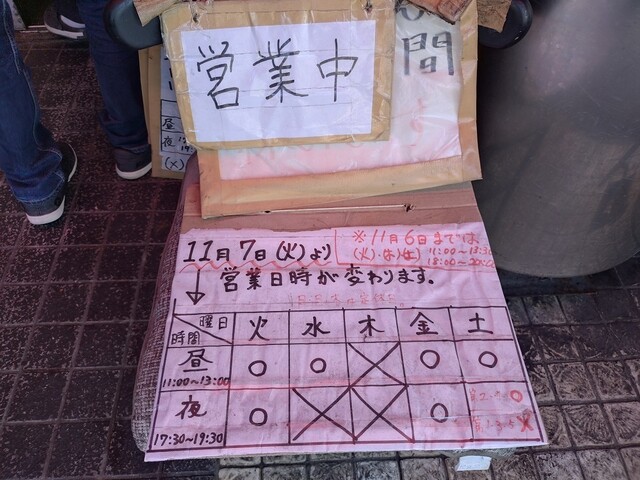 営業中
間
昼
夜
(火)
11月7日(火)より
※11月6日までは、
(火)・(木)・(土) 11:00〜13:30
18:00〜20:00
営業日時が変わります。
曜日 火 水 木 金 土
時間
昼 ○ ○ × ○ ○
11:00〜13:00
夜 ○ × × ○
17:30〜19:30